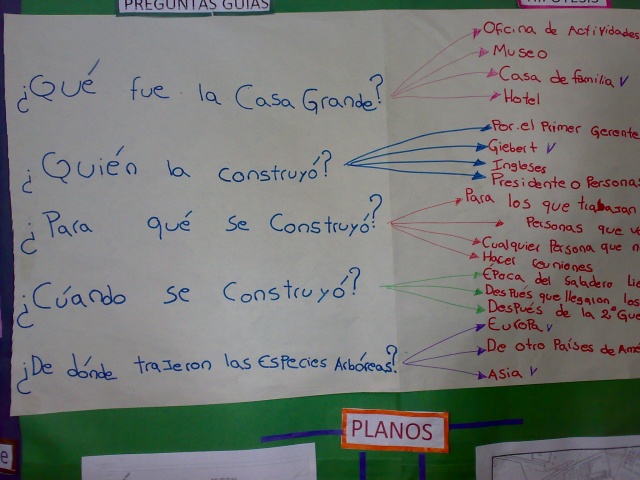 PREGUNTAS GUIAS
HIPÓTESIS
¿Qué fue la Casa Grande?
Oficina de Actividades
Museo
Casa de familia √
Hotel
¿Quién la construyó?
Por el Primer Gerente
Giebert √
Ingleses
Presidente o Persona
¿Para qué se Construyó?
Para los que trabajan
Personas que
Cualquier Persona que
Hacer reuniones
¿Cúando se Construyó?
Época del Saladero
Después que llegaron los
Después de la 2º
¿De dónde trajeron las Especies Arbóreas?
Europa √
De otro Países de
Asia √
PLANOS